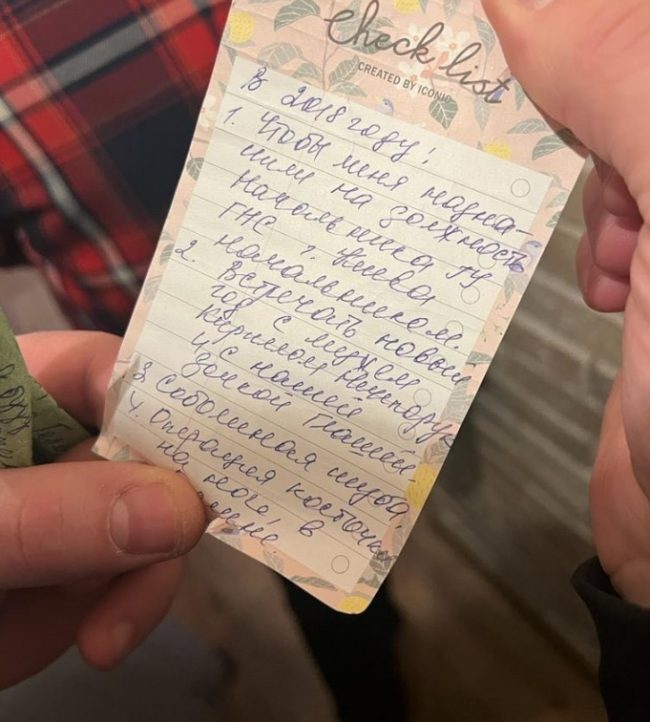 check list
CREATED BY ICONIC
В 2018 году:
1. Чтобы меня назна-
чили на должность
начальника ГУ
ГНС г. Киева
начальником.
2. Встречать новый
год с мужем
Кириллом
и с нашей
дочкой Глашей.
3. Соболинная шуба
4. Операция косточки
на ноге, в